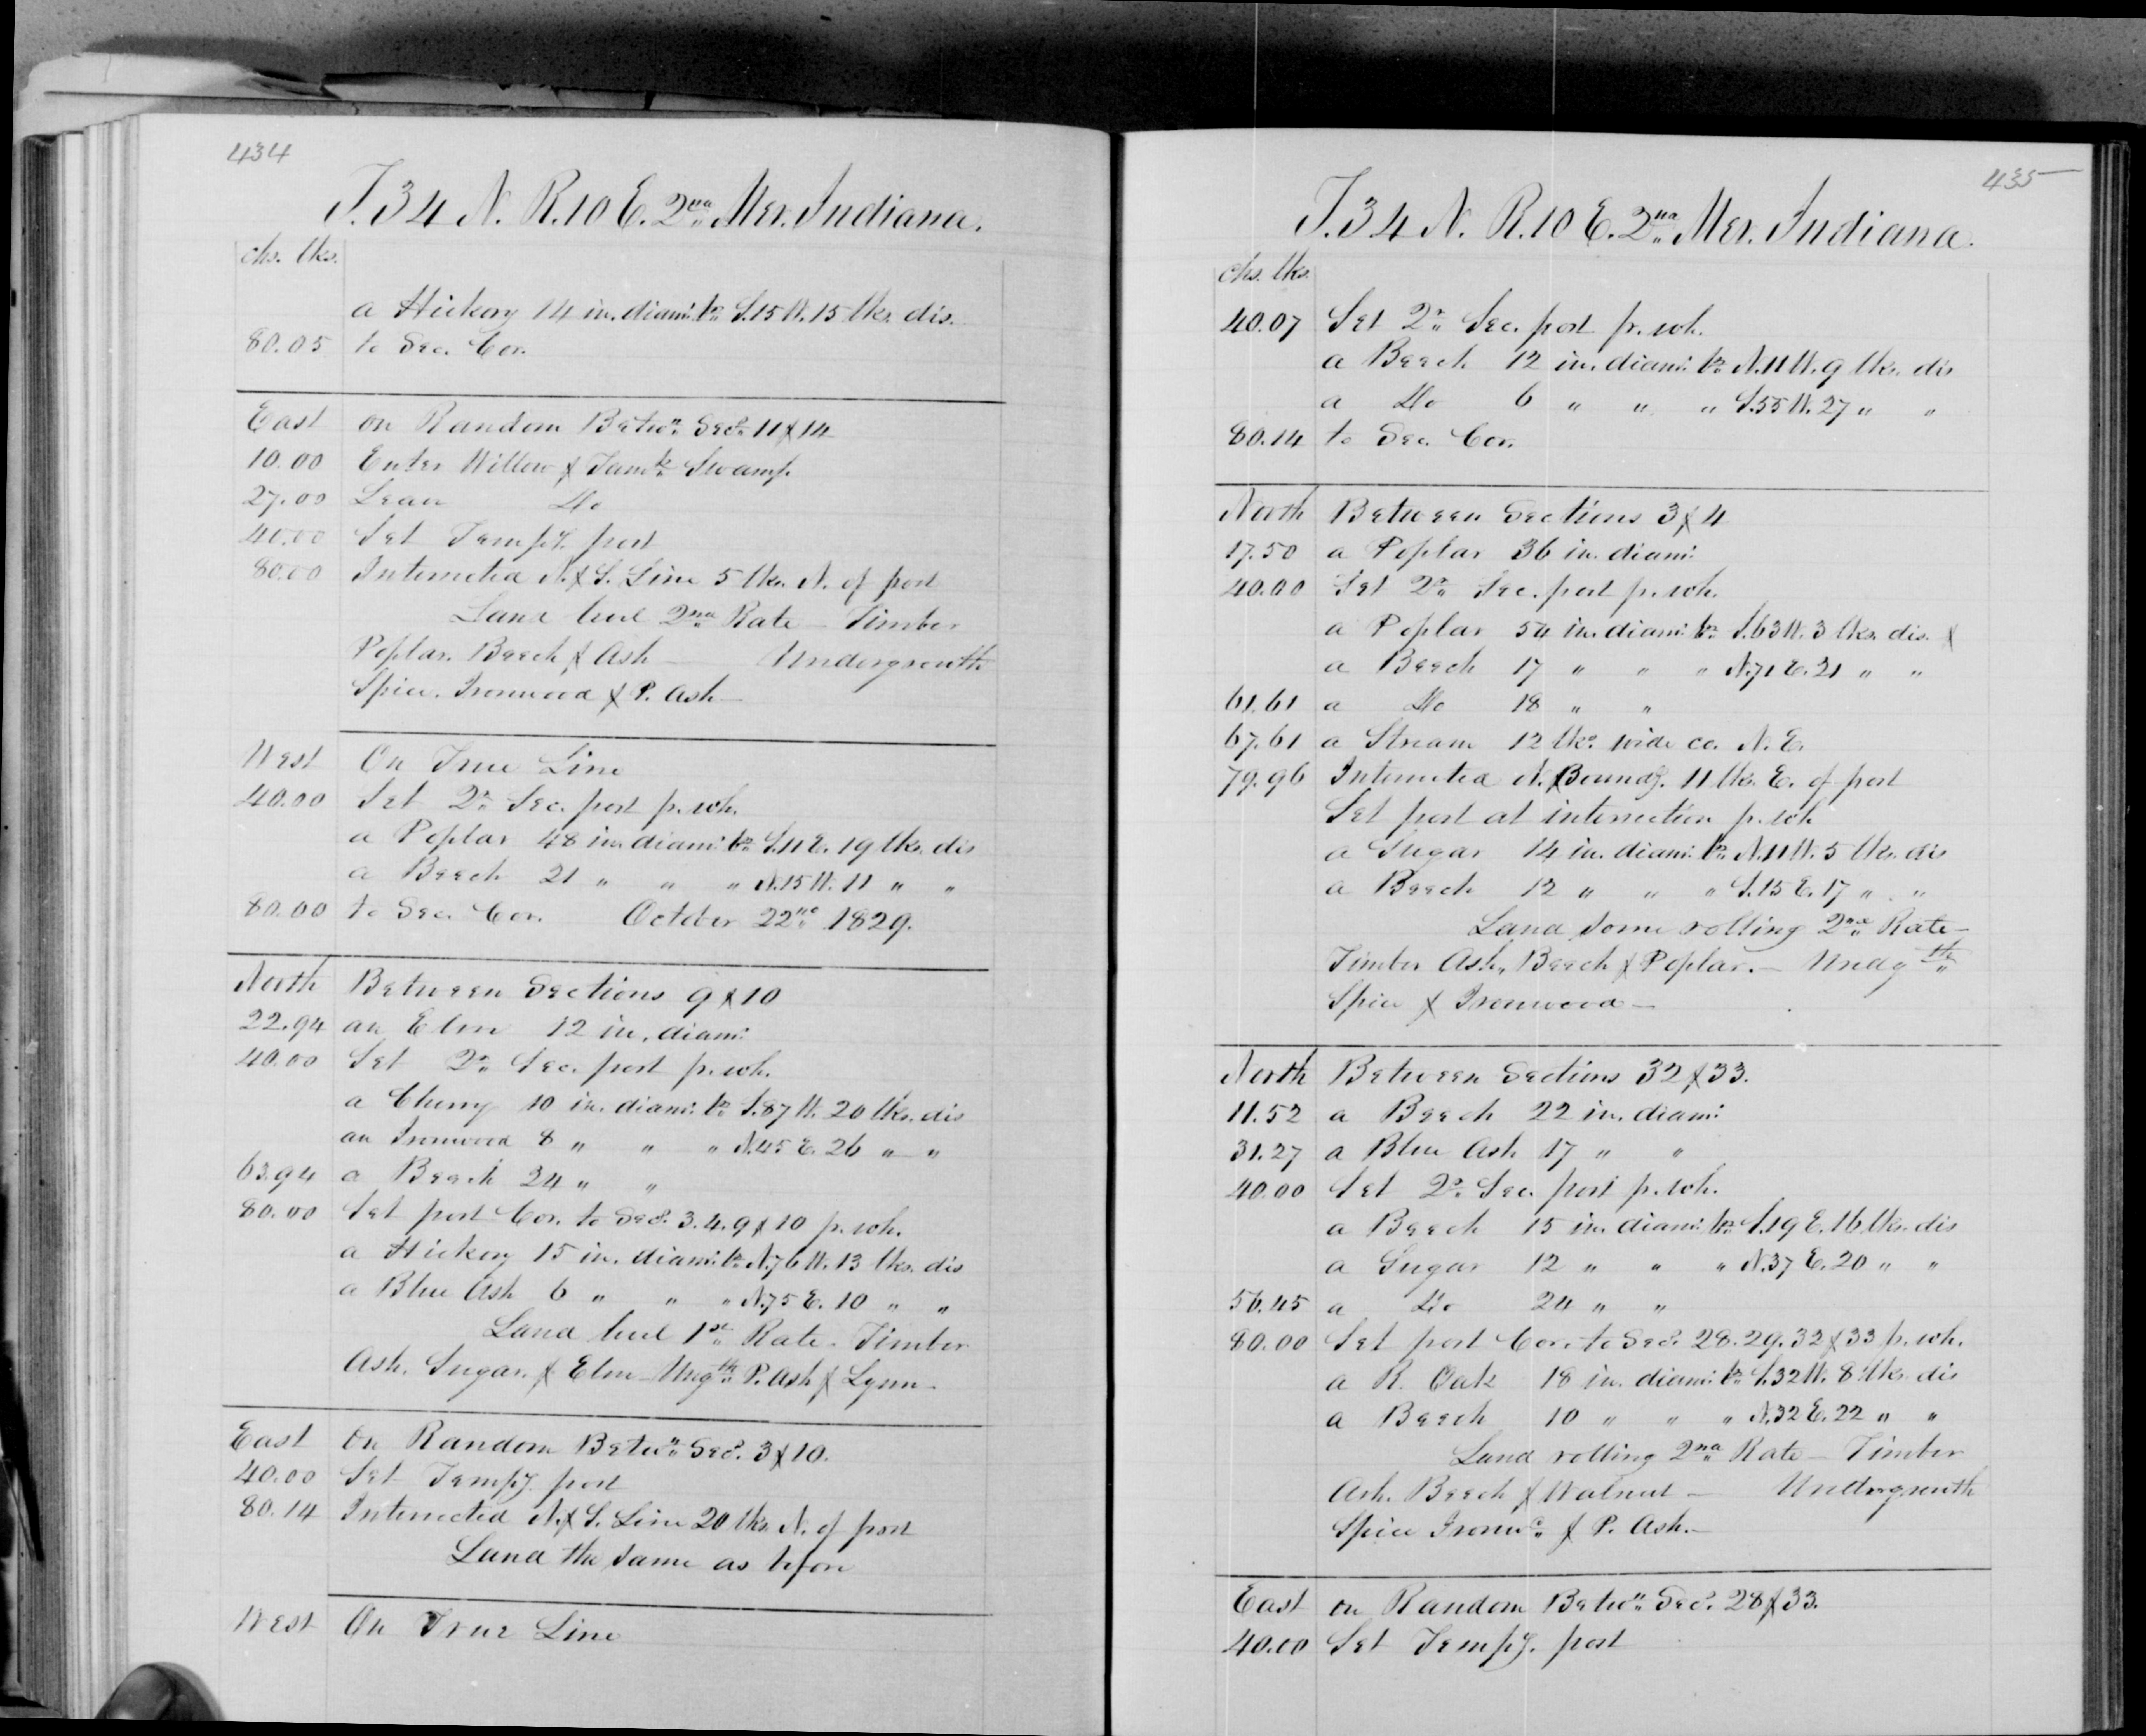 434
T. 34 N. R. 10 E. 2nd Mer. Indiana.
chs. lks.
a Hickory 14 in. diam: br. S. 15 W. 15 lks. dis.
80.05 to Sec. Cor.
East on Random Betwn. Secs. 11 & 14
10.00 Enter Willow & Tamk. Swamp.
27.00 Leave Do
40.00 Set Tempy. post
80.00 Intersected N. & S. Line 5 lks. N. of post
Land level 2nd Rate - Timber
Poplar. Beech & Ash - Undergrowth
Spice. Ironwood & P. Ash -
West On True Line
40.00 Set 2r. Sec. post fr. wh.
a Poplar 48 in. diam: br. S. 11 E. 19 lks. dis
a Beech 21 " " " N. 15 W. 11 " "
80.00 to Sec. Cor. October 22nd 1829.
North Between Sections 9 & 10
22.94 an Elm 12 in. diam:
40.00 Set 2r. Sec. post fr. wh.
a Cherry 10 in. diam: br. S. 87 W. 20 lks. dis
an Ironwood 8 " " " N. 45 E. 26 " "
63.94 a Beech 24 " "
80.00 Set post Cor. to Secs. 3. 4. 9 & 10 fr. wh.
a Hickory 15 in. diam: br. N. 76 W. 13 lks. dis
a Blue Ash 6 " " " N. 75 E. 10 " "
Land level 1st Rate - Timber
Ash. Sugar. & Elm - Ungth. P. Ash & Lynn -
East On Random Betwn. Secs. 3 & 10.
40.00 Set Tempy. post
80.14 Intersected N. & S. Line 20 lks. N. of post
Land the same as before
West On True Line
435
T. 34 N. R. 10 E. 2nd Mer. Indiana.
chs. lks.
40.07 Set 2r. Sec. post fr. wh.
a Beech 12 in. diam: br. N. 11 W. 9 lks. dis
a Do 6 " " " S. 55 W. 27 " "
80.14 to Sec. Cor.
North Between Sections 3 & 4
17.50 a Poplar 36 in. diam:
40.00 Set 2r. Sec. post fr. wh.
a Poplar 54 in. diam: br. S. 63 W. 3 lks. dis. &
a Beech 17 " " " N. 71 E. 21 " "
61.61 a Do 18 " "
67.61 a Stream 12 lks. wide co. N. E.
79.96 Intersected N. Boundy. 11 lks. E. of post
Set post at intersection fr. wh
a Sugar 14 in. diam: br. N. 11 W. 5 lks. dis
a Beech 12 " " " S. 15 E. 17 " "
Land some rolling 2nd Rate -
Timber Ash, Beech & Poplar. - Undgth
Spice & Ironwood -
North Between Sections 32 & 33.
11.52 a Beech 22 in. diam:
31.27 a Blue Ash 17 " "
40.00 Set 2r. Sec. post fr. wh.
a Beech 15 in. diam: br. S. 19 E. 16 lks. dis
a Sugar 12 " " " N. 37 E. 20 " "
56.45 a Do 24 " "
80.00 Set post Cor. to Secs. 28. 29. 32 & 33 fr. wh.
a R. Oak 18 in. diam: br. S. 32 W. 8 lks. dis
a Beech 10 " " " N. 32 E. 22 " "
Land rolling 2nd Rate - Timber
Ash. Beech & Walnut - Undergrowth
Spice Ironwd. & P. Ash. -
East on Random Betwn. Secs. 28 & 33.
40.00 Set Tempy. post